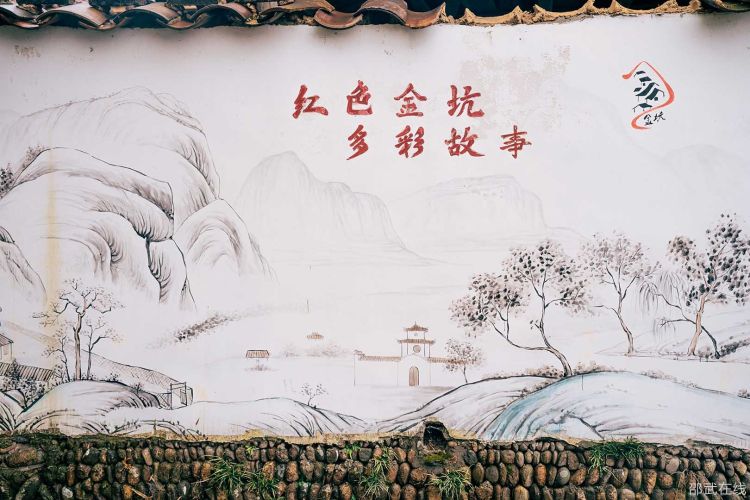 红色金坑
多彩故事
金坑
邵武在线